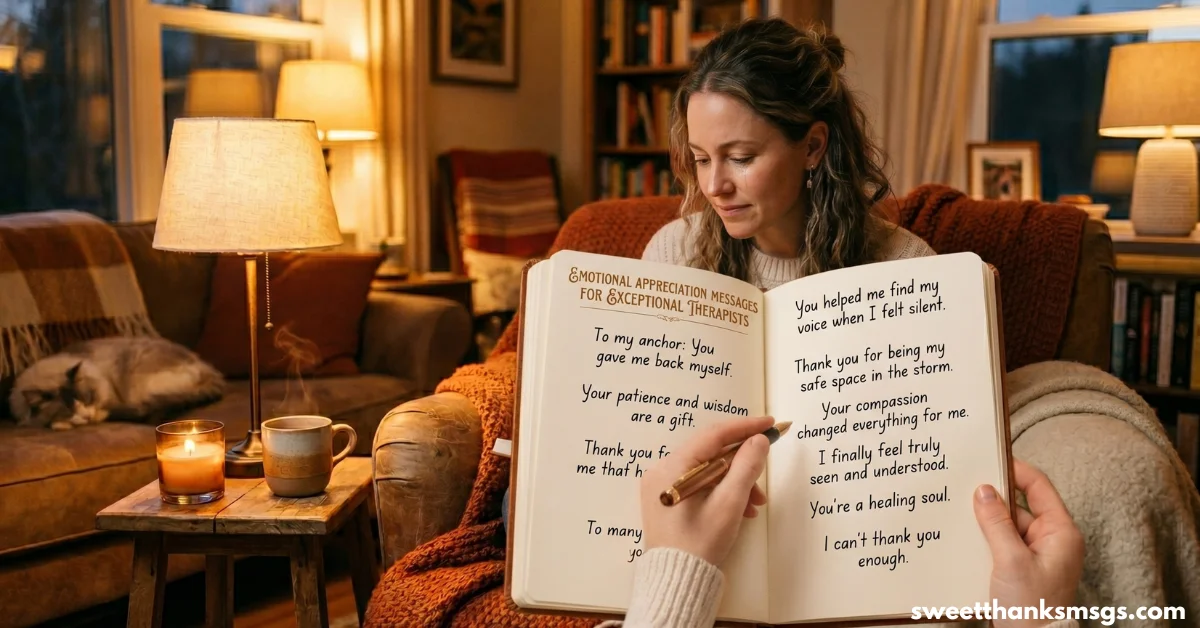 EMOTIONAL APPRECIATION MESSAGES
FOR EXCEPTIONAL THERAPISTS
To my anchor: You
gave me back myself.
Your patience and wisdom
are a gift.
Thank you
me that
To many
You helped me find my
voice when I felt silent.
Thank you for being my
safe space in the storm.
Your compassion
changed everything for me.
I finally feel truly
seen and understood.
You're a healing soul.
I can't thank you
enough.
sweetthanksmsgs.com